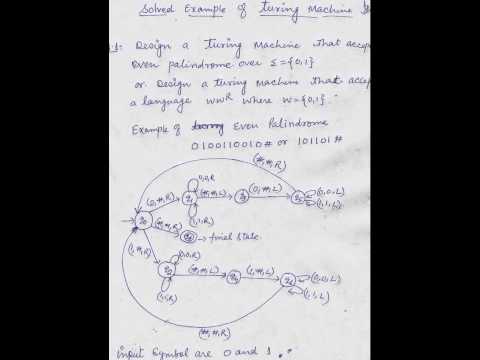 Solved Example of Turing Machine
1: Design a Turing Machine that accep
even palindrome over Σ={0,1}
or Design a turing Machine that accep
a language wwR where w={0,1}.
Example of Even Palindrome
0100110010# or 101101#
(#,#,R)
0,0,R
(0,#,R) q1 (#,#,L) q3 (0,#,L) q5 (0,0,L)
(1,1,L)
q0 (#,#,R) (1,1,R)
→ final state.
(1,#,R) (0,0,R)
q2 (#,#,L) q4 (1,#,L) q6 (0,0,L)
(1,1,R) (1,1,L)
(#,#,R)
input Symbol are 0 and 1.